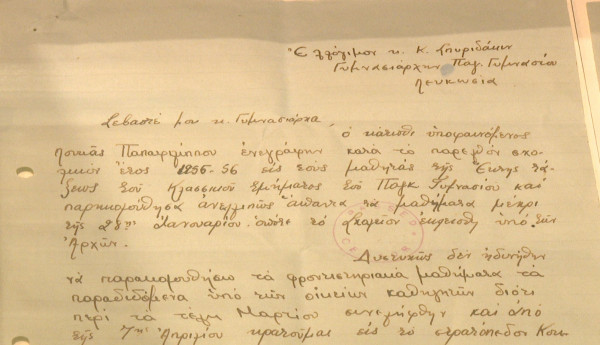 Ἐλλόγιμον κ. Κ. Σπυριδάκιν
Γυμνασιάρχην Παγ. Γυμνασίου
Λευκωσία
Σεβαστέ μου κ. Γυμνασιάρχα,
ὁ κάτωθι ὑποφαινόμενος
Λουκᾶς Παπαφιλίππου ἐνεγράφην κατὰ τὸ παρελθὸν σχο-
λικὸν ἔτος 1956-56 εἰς τοὺς μαθητὰς τῆς Ἕκτης τά-
ξεως τοῦ Κλασσικοῦ τμήματος τοῦ Παγκ. Γυμνασίου καὶ
παρηκολούθησα ἀνελλιπῶς ἅπαντα τὰ μαθήματα μέχρι
τῆς 28ης Ἰανουαρίου ὁπότε τὸ Σχολεῖον ἐκλείσθη ὑπὸ τῶν
Ἀρχῶν.
Δυστυχῶς δὲν ἠδυνήθην
νὰ παρακολουθήσω τὰ φροντιστηριακὰ μαθήματα τὰ
παραδιδόμενα ὑπὸ τῶν οἰκείων καθηγητῶν διότι
περὶ τὰ τέλη Μαρτίου συνελήφθην καὶ ἀπὸ
τῆς 7ης Ἀπριλίου κρατοῦμαι εἰς τὸ στρατόπεδον Κοκκ